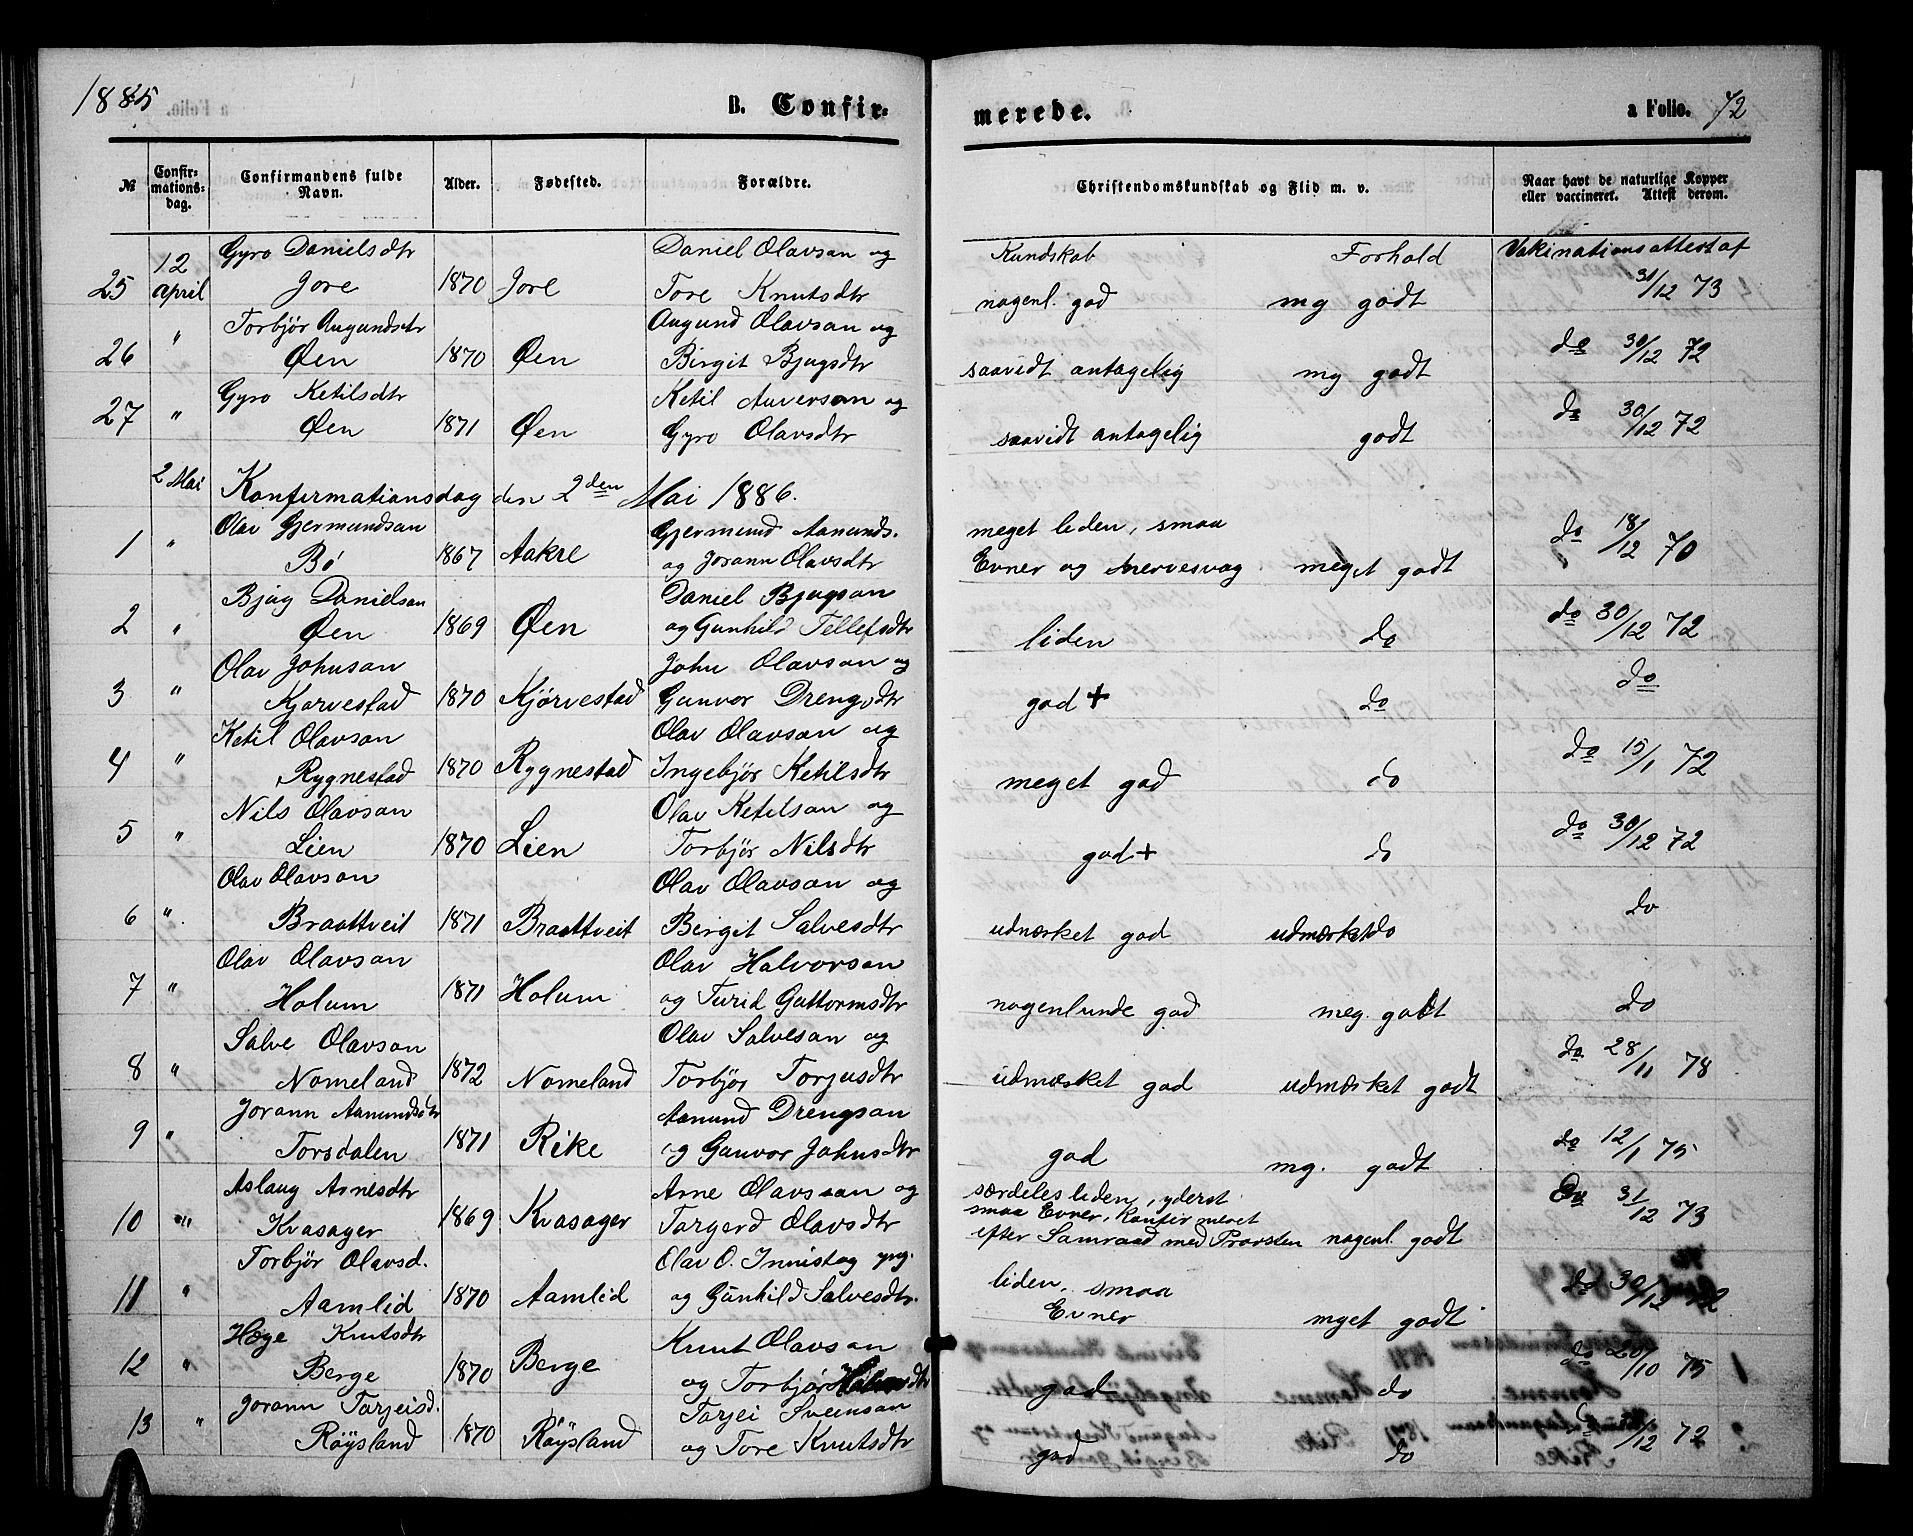 1885
B. Confir-
merede.
a Folio. 72
№
Confir-
mations-
dag.
Confirmandens fulde
Navn.
Alder.
Fødested.
Forældre.
Christendomskundskab og Flid m. v.
Naar havt de naturlige Kopper
eller vaccineret. Attest derom.
12 Gyro Danielsdtr Daniel Olavsan og Kundskab Forhold Vakinationsattest af
25 April Jore 1870 Jore Tore Knutsdtr nogenl. god mg godt 31/12 73
" Torbjør Augundsdtr Augund Olavsan og
26 Øen 1870 Øen Birgit Bjugsdtr saavidt antagelig mg godt do 30/12 72
Gyro Ketilsdtr Ketil Auversan og
27 " Øen 1871 Øen Gyro Olavsdtr saavidt antagelig godt do 30/12 72
2 Mai Konfirmationsdag den 2den Mai 1886.
Olav Gjermundsan Gjermund Aanunds. meget liden, smaa
1 " Bø 1867 Aakre og Jorann Olavsdtr Evner og nervesvag meget godt do 18/12 70
Bjug Danielsan Daniel Bjugsan
2 " Øen 1869 Øen og Gunhild Tellefsdtr liden do do 30/12 72
Olav Johnsan John Olavsan og
3 " Kjørvestad 1870 Kjørvestad Gunvor Drengsdtr god + do do
Ketil Olavsan Olav Olavsan og
4 " Rygnestad 1870 Rygnestad Ingebjør Ketilsdtr meget god do do 15/1 72
Nils Olavsan Olav Ketilsan og
5 " Lien 1870 Lien Torbjør Nilsdtr god + do do 30/12 72
Olav Olavsan Olav Olavsan og
6 " Braattveit 1871 Braattveit Birgit Salvesdtr udmærket god udmærket do do
Olav Olavsan Olav Halvorsan
7 " Holum 1871 Holum og Turid Guttormsdtr nogenlunde god meg. godt do
Salve Olavsan Olav Salvesan og
8 " Nomeland 1872 Nomeland Torbjør Torjusdtr udmærket god udmærket godt do 28/11 78
Jorann Aanundsdtr Aanund Drengsan
9 " Torsdalen 1871 Rike og Gunvor Johnsdtr god mg. godt do 12/1 75
Aslaug Arnesdtr Arne Olavssan og særdeles liden, yderst
10 " Kvasager 1869 Kvasager Targerd Olavsdtr smaa Evner, konfirmeret
efter Samraad med Provsten nogenl. godt 31/12 73
Torbjør Olavsd. Olav O. Innistog yng. liden, smaa
11 " Aamlid 1870 Aamlid og Gunhild Salvesdtr. Evner mget godt do 30/12 72
Hæge Knutsdtr Knut Olavsan
12 " Berge 1870 Berge og Torbjør god do do 20/10 75
Jorann Tarjeisd. Tarjei Sveinsan
13 " Røysland 1870 Røysland og Tore Knutsdtr god do 30/12 72